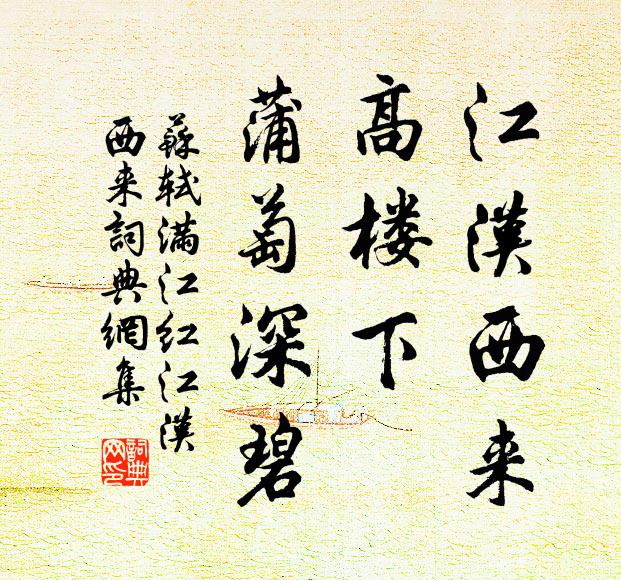 江漢西来
高楼下
蒲萄深碧
蘇轼滿江红江漢
西来詞典網集
詞典
网印